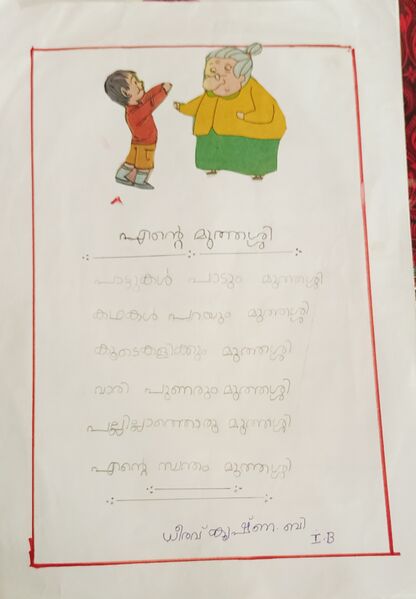 എന്റെ മുത്തശ്ശി
പാട്ടുകൾ പാടും മുത്തശ്ശി
കഥകൾ പറയും മുത്തശ്ശി
കൂടെകളിക്കും മുത്തശ്ശി
വാരി പുണരും മുത്തശ്ശി
പല്ലില്ലാത്തൊരു മുത്തശ്ശി
എന്റെ സ്വന്തം മുത്തശ്ശി
ധീരവ് കൃഷ്ണ. ബി
I B